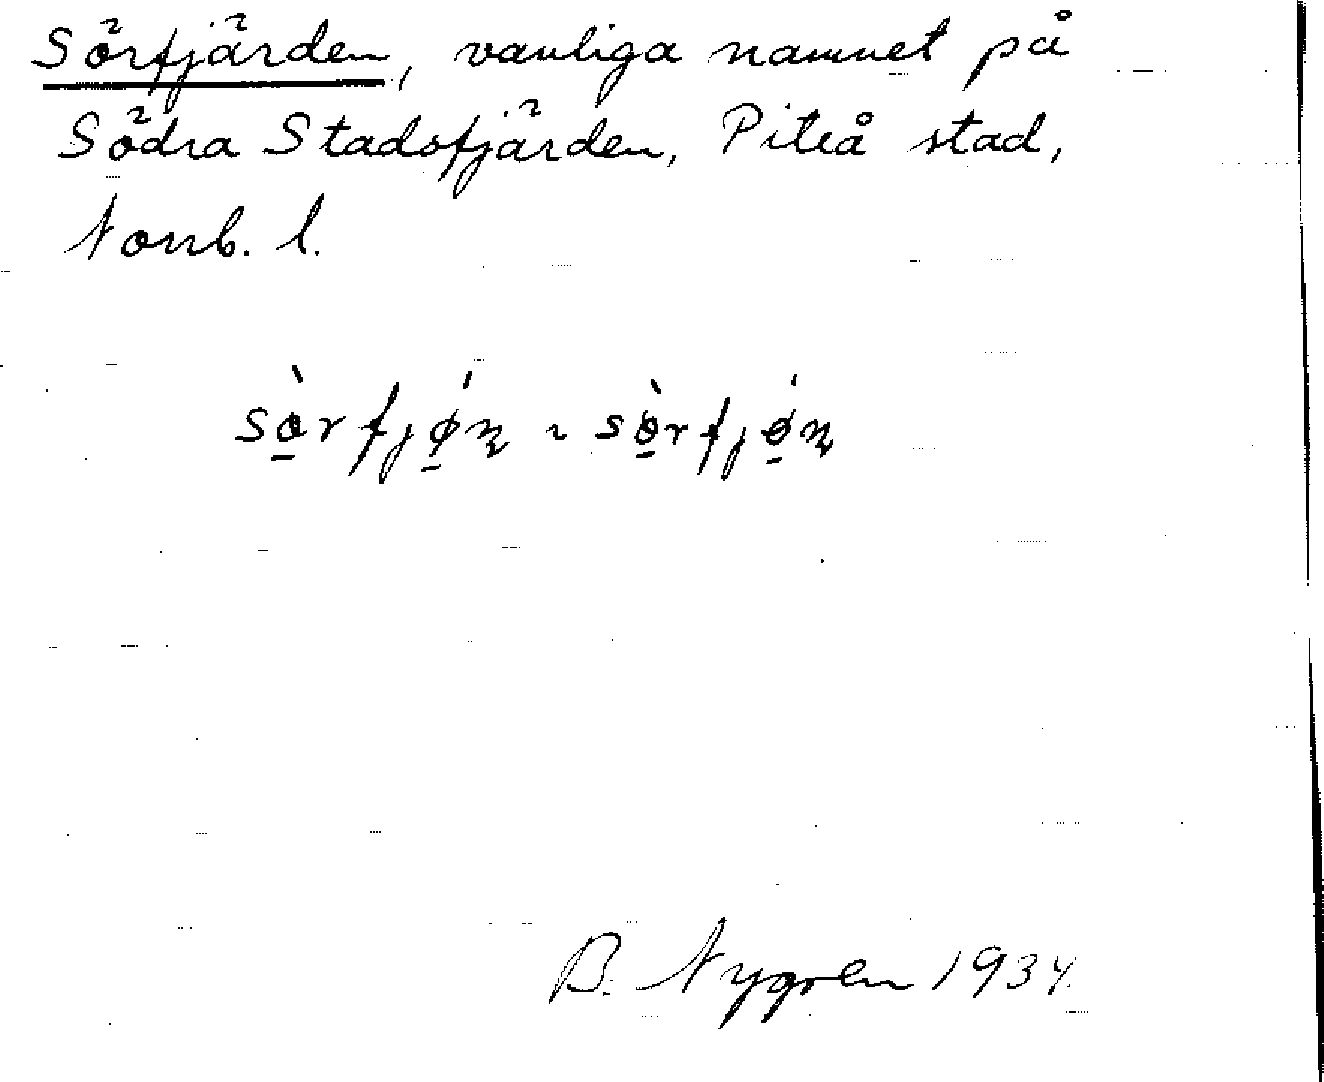 Sörfjärden, vanliga namnet på
Södra Stadsfjärden, Piteå stad,
Norrb. l.
B. Nygren 1934.